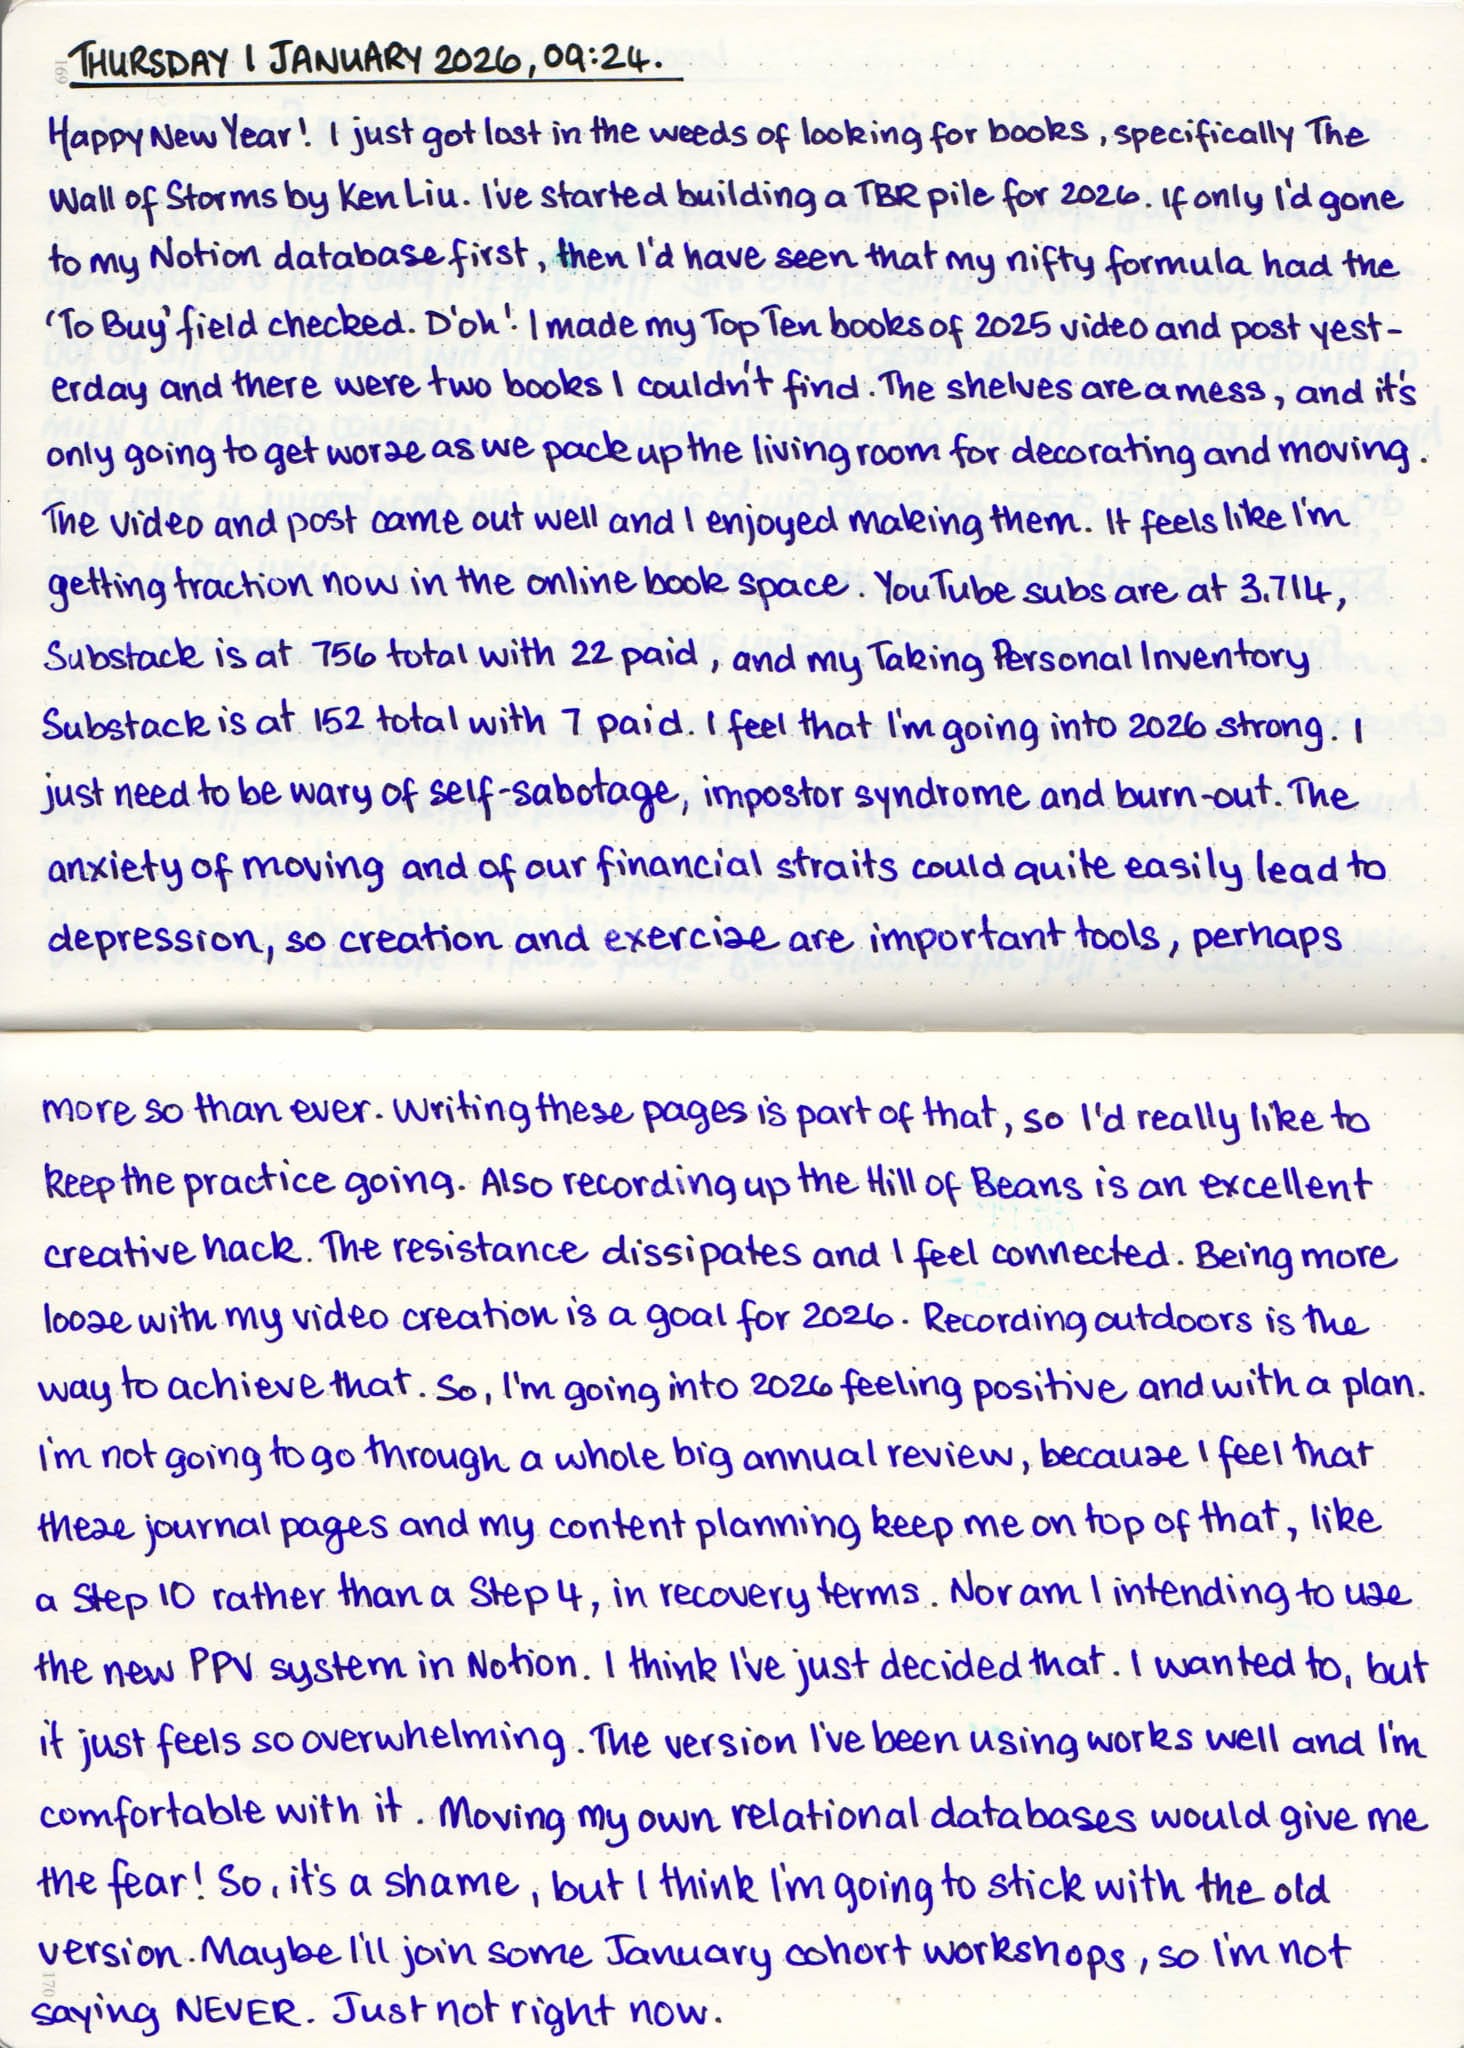 THURSDAY 1 JANUARY 2026, 09:24.
169
Happy New Year! I just got lost in the weeds of looking for books, specifically The
Wall of Storms by Ken Liu. I've started building a TBR pile for 2026. If only I'd gone
to my Notion database first, then I'd have seen that my nifty formula had the
'To Buy' field checked. D'oh! I made my Top Ten books of 2025 video and post yest-
erday and there were two books I couldn't find. The shelves are a mess, and it's
only going to get worse as we pack up the living room for decorating and moving.
The video and post came out well and I enjoyed making them. It feels like I'm
getting traction now in the online book space. YouTube subs are at 3,714,
Substack is at 756 total with 22 paid, and my Taking Personal Inventory
Substack is at 152 total with 7 paid. I feel that I'm going into 2026 strong. I
just need to be wary of self-sabotage, impostor syndrome and burn-out. The
anxiety of moving and of our financial straits could quite easily lead to
depression, so creation and exercise are important tools, perhaps
more so than ever. Writing these pages is part of that, so I'd really like to
keep the practice going. Also recording up the Hill of Beans is an excellent
creative hack. The resistance dissipates and I feel connected. Being more
loose with my video creation is a goal for 2026. Recording outdoors is the
way to achieve that. So, I'm going into 2026 feeling positive and with a plan.
I'm not going to go through a whole big annual review, because I feel that
these journal pages and my content planning keep me on top of that, like
a Step 10 rather than a Step 4, in recovery terms. Nor am I intending to use
the new PPV system in Notion. I think I've just decided that. I wanted to, but
it just feels so overwhelming. The version I've been using works well and I'm
comfortable with it. Moving my own relational databases would give me
the fear! So, it's a shame, but I think I'm going to stick with the old
version. Maybe I'll join some January cohort workshops, so I'm not
saying NEVER. Just not right now.
170